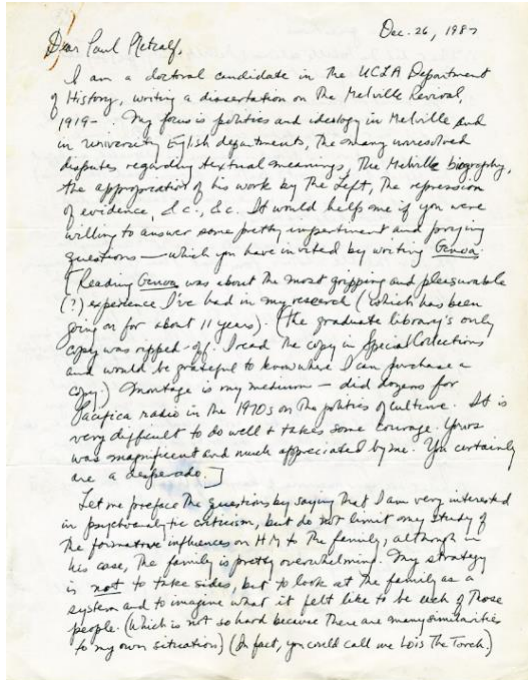 Dec. 26, 1987
Dear Paul Metcalf,
I am a doctoral candidate in the UCLA Department
of History, writing a dissertation on the Melville Revival,
1919- My focus is politics and ideology in Melville and
in university English departments, the many unresolved
disputes regarding textual meanings, the Melville biography,
the appropriation of his work by the Left, the repression
of evidence, &c., &c. It would help me if you were
willing to answer some pretty impertinent and prying
questions — which you have invited by writing Genoa.
[Reading Genoa was about the most gripping and pleasurable
(?) experience I've had in my research (which has been
going on for about 11 years). (The graduate library's only
copy was ripped-off. I read the copy in Special Collections
and would be grateful to know where I can purchase a
copy.) Montage is my medium — did dozens for
Pacifica radio in the 1970s on the politics of culture. It is
very difficult to do well & takes some courage. Yours
was magnificent and much appreciated by me. You certainly
are a desperado.]
Let me preface the questions by saying that I am very interested
in psychoanalytic criticism, but do not limit my study of
the formative influences on HM to the family, although in
his case, the family is pretty overwhelming. My strategy
is not to take sides, but to look at the family as a
system and to imagine what it felt like to be each of those
people. (Which is not so hard because there are many similarities
to my own situation) (In fact, you could call me Lois The Torch.)